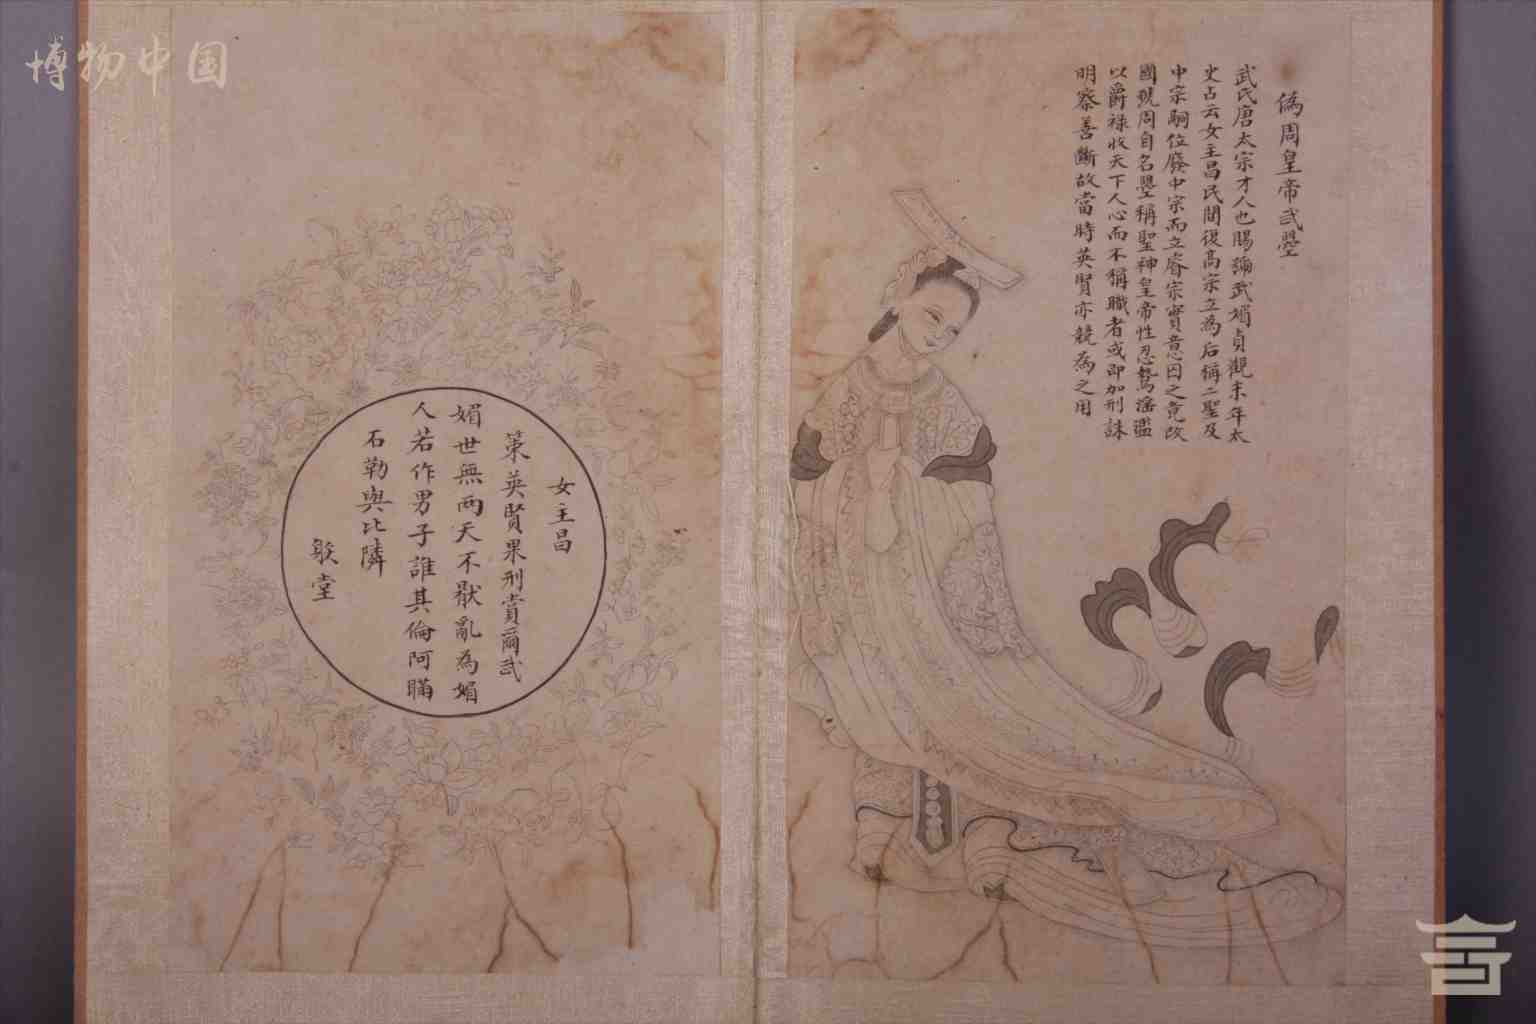 博物中国
偽周皇帝武曌
武氏唐太宗才人也賜號武媚貞觀末年太
史占云女主昌民間後高宗立為后稱二聖及
中宗嗣位廢中宗而立睿宗實意因之竟改
國號周自名曌稱聖神皇帝性忍鷙滛濫
以爵祿收天下人心而不稱職者或即加刑誅
明察善斷故當時英賢亦競為之用
女主昌
策英賢果刑賞爾武
媚世無兩天不厭亂為媚
人若作男子誰其倫阿瞞
石勒與比隣
堂